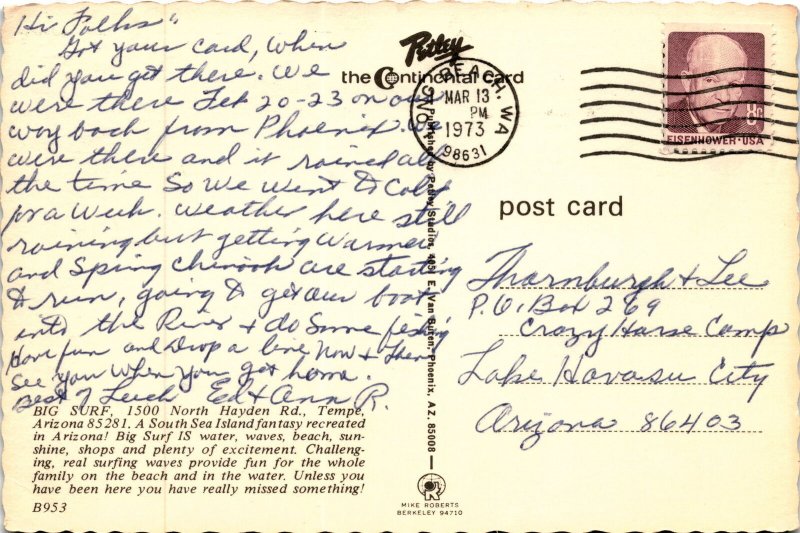 Hi Folks"
Got your card, When
did you get there. We
were there Feb 20-23 on our
way back from Phoenix. We
were there and it rained all
the time So We Went to Calif
for a Week. Weather here still
raining but getting Warmer
and Spring Chinook are starting
to run, going to get our boat
into the River & do Some fishing
Have fun and Drop a line Now & Then
See you When you get home.
Best of Luck Ed & Ann R.
BIG SURF, 1500 North Hayden Rd., Tempe,
Arizona 85281. A South Sea Island fantasy recreated
in Arizona! Big Surf IS water, waves, beach, sun-
shine, shops and plenty of excitement. Challeng-
ing, real surfing waves provide fun for the whole
family on the beach and in the water. Unless you
have been here you have really missed something!
B953
Petley
the Continental card
Published by Petley Studios, 4051 E. Van Buren, Phoenix, AZ. 85008
MIKE ROBERTS
BERKELEY 94710
BEACH, WA
MAR 13
PM
1973
98631
8c
EISENHOWER·USA
post card
Thornburgh & Lee
P.O. Box 269
Crazy Horse Camp
Lake Havasu City
Arizona 86403